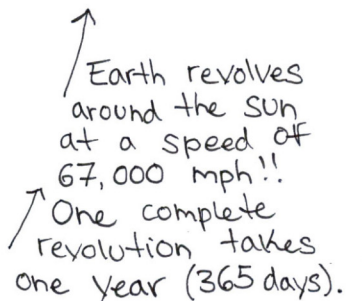 Earth revolves
around the sun
at a speed of
67,000 mph!!
One complete
revolution takes
one year (365 days).